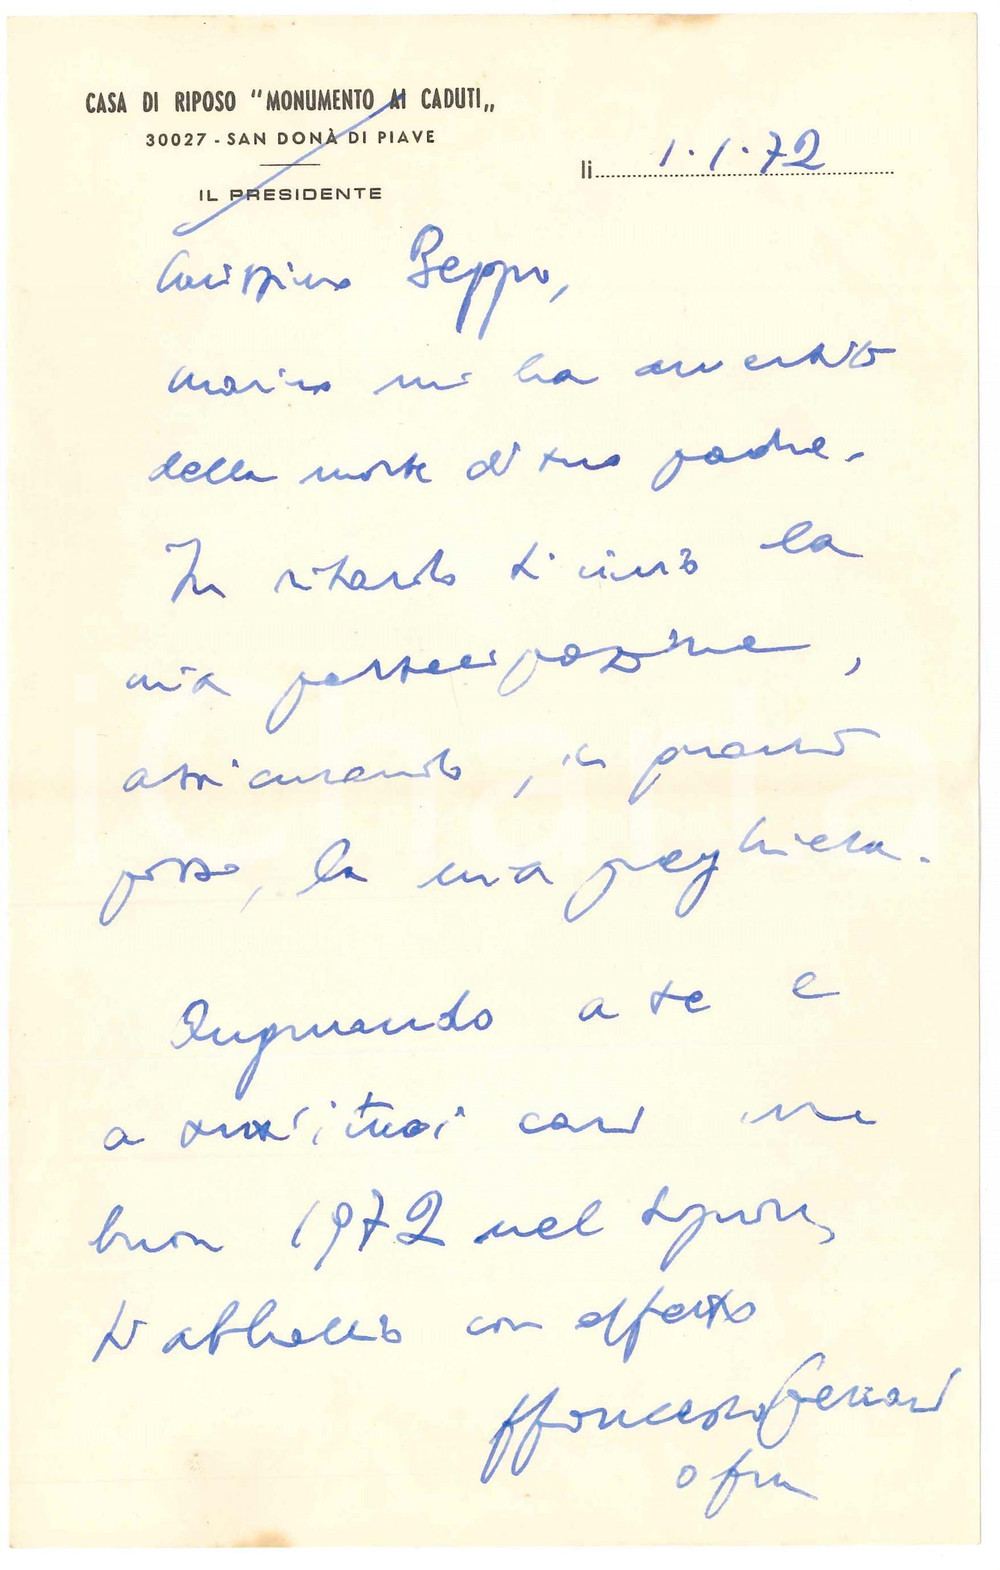 CASA DI RIPOSO "MONUMENTO AI CADUTI„
30027 - SAN DONÀ DI PIAVE
IL PRESIDENTE
li 1.1.72
Carissimo Beppo,
Marino mi ha avvertito
della morte di tuo padre.
In ritardo ti invio la
mia partecipazione,
assicurando, in quanto
posso, la mia preghiera.
Augurando a te e
a tutti i tuoi cari un
buon 1972 nel Signore,
ti abbraccio con affetto
p Francesco Ferrari
ofm